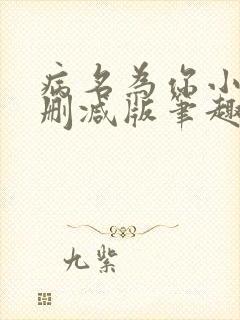 病名为你小
删减版笔趣
九紫